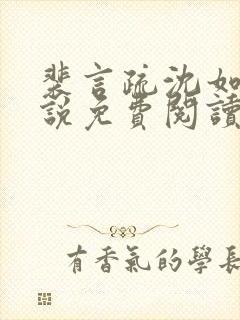 裴言疏沈如
說免費閱讀
有香氣的學長